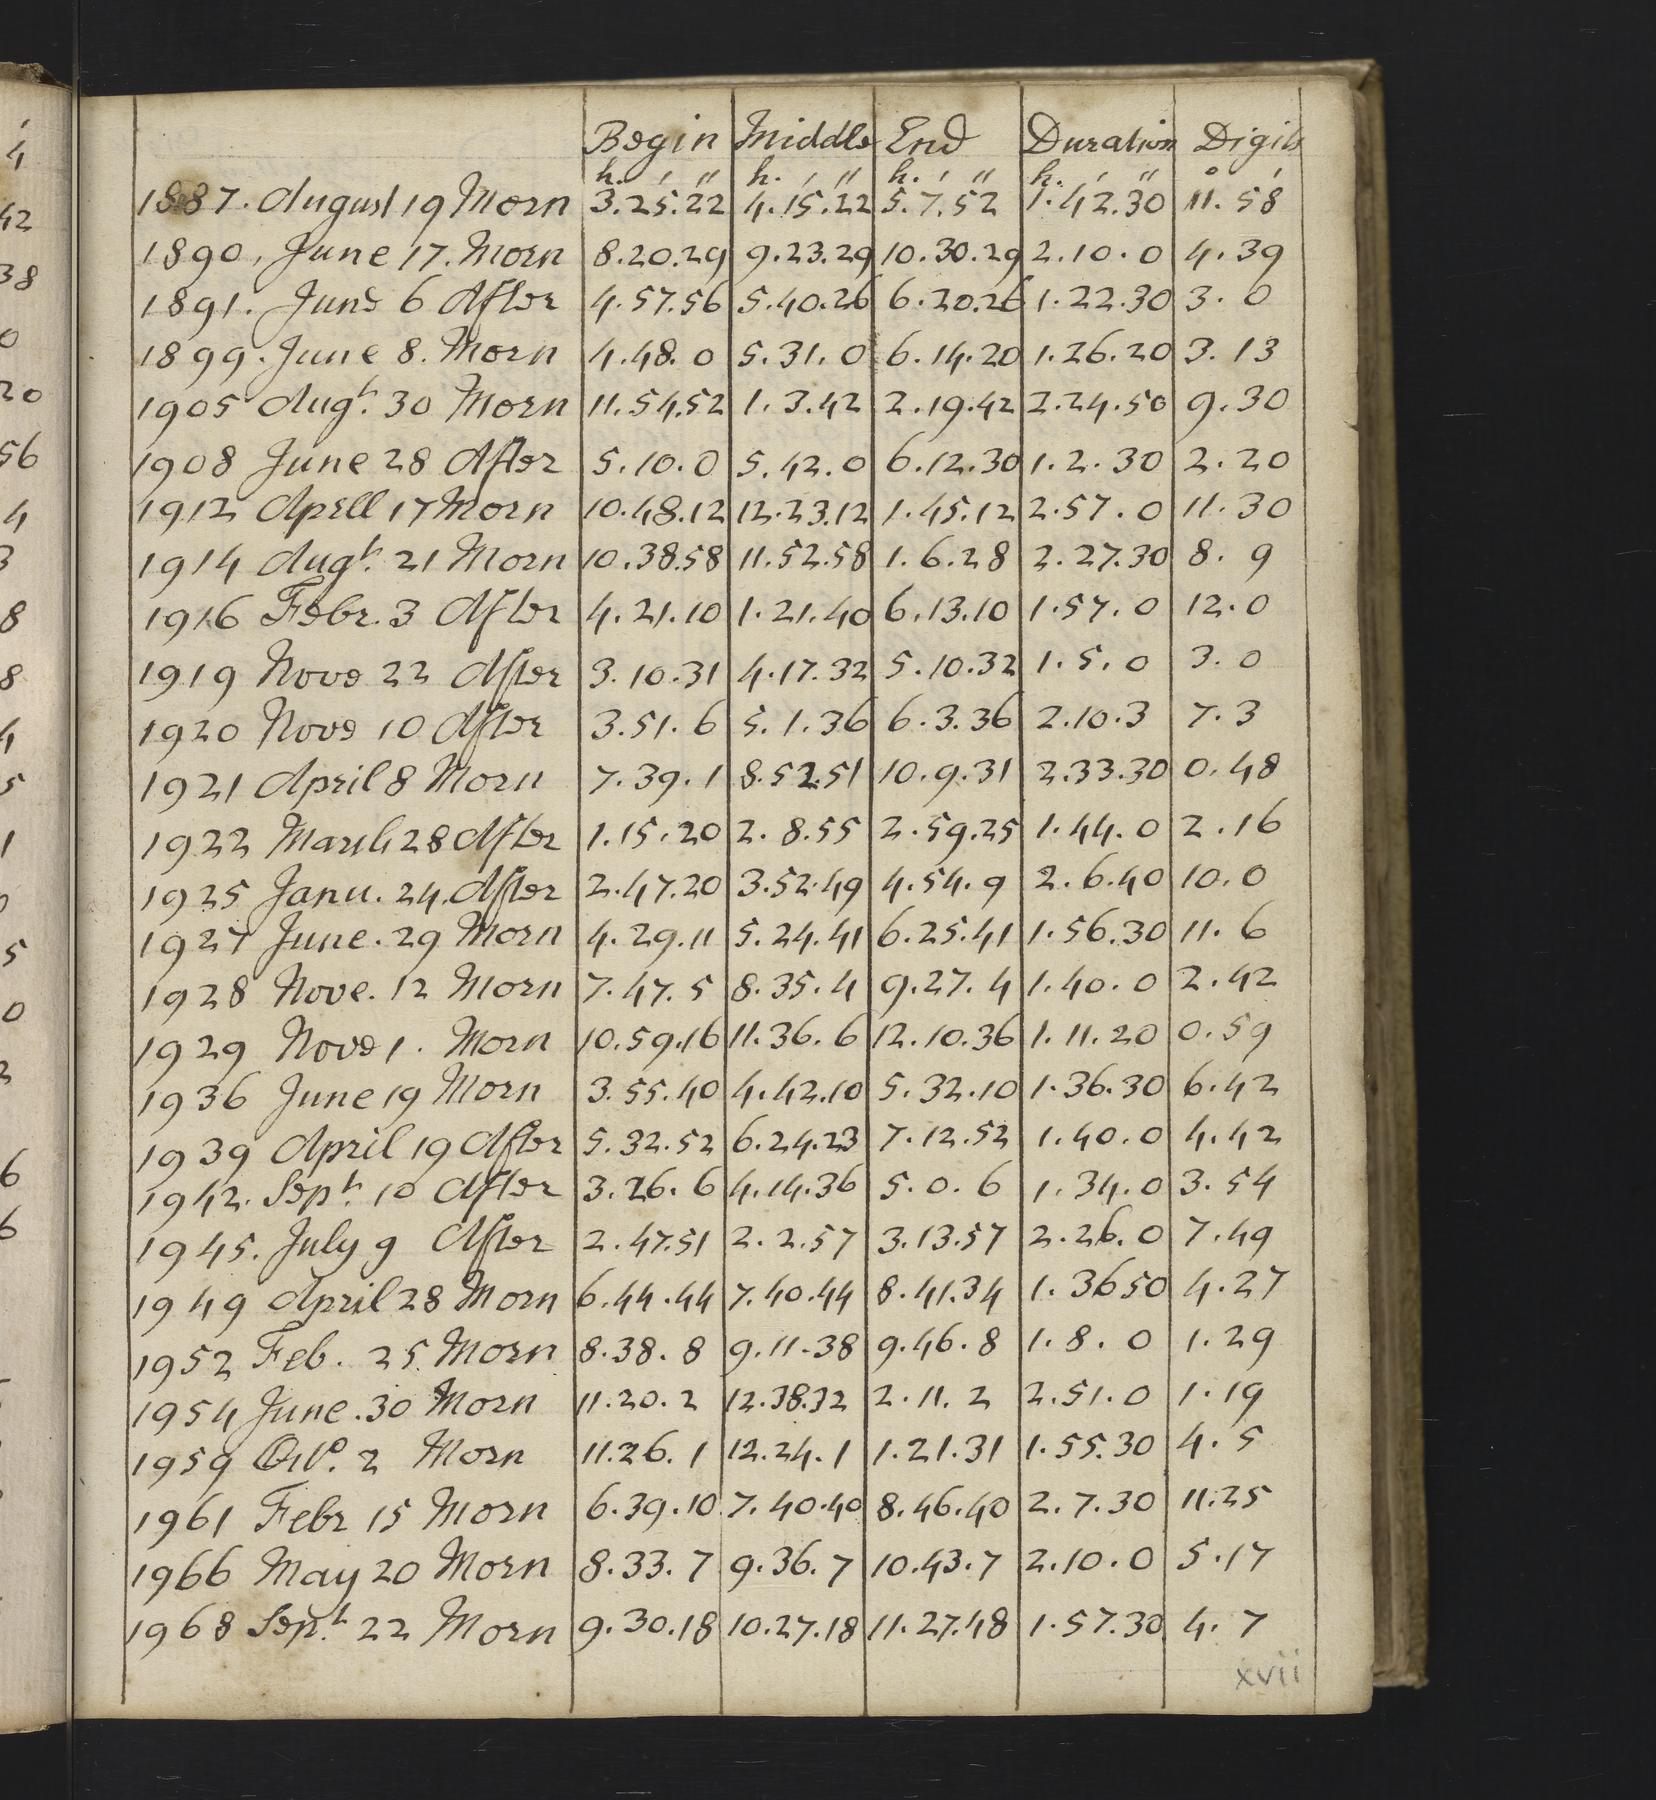 Begin Middle End Duration Digits
h. ' '' h. ' '' h. ' '' h. ' '' ° '
1887. August 19 Morn 3.25.22 4.15.22 5.7.52 1.42.30 11.58
1890. June 17. Morn 8.20.29 9.23.29 10.30.29 2.10.0 4.39
1891. June 6 After 4.57.56 5.40.26 6.20.26 1.22.30 3.0
1899. June 8. Morn 4.48.0 5.31.0 6.14.20 1.26.20 3.13
1905 Augt. 30 Morn 11.54.52 1.3.42 2.19.42 2.24.50 9.30
1908 June 28 After 5.10.0 5.42.0 6.12.30 1.2.30 2.20
1912 Aprill 17 Morn 10.48.12 12.23.12 1.45.12 2.57.0 11.30
1914 Augt. 21 Morn 10.38.58 11.52.58 1.6.28 2.27.30 8.9
1916 Febr. 3 After 4.21.10 1.21.40 6.13.10 1.57.0 12.0
1919 Nove 22 After 3.10.31 4.17.32 5.10.32 1.5.0 3.0
1920 Nove 10 After 3.51.6 5.1.36 6.3.36 2.10.3 7.3
1921 April 8 Morn 7.39.1 8.52.51 10.9.31 2.33.30 0.48
1922 March 28 After 1.15.20 2.8.55 2.59.25 1.44.0 2.16
1925 Janu. 24. After 2.47.20 3.52.49 4.54.9 2.6.40 10.0
1927 June. 29 Morn 4.29.11 5.24.41 6.25.41 1.56.30 11.6
1928 Nove. 12 Morn 7.47.5 8.35.4 9.27.4 1.40.0 2.42
1929 Nove 1. Morn 10.59.16 11.36.6 12.10.36 1.11.20 0.59
1936 June 19 Morn 3.55.40 4.42.10 5.32.10 1.36.30 6.42
1939 April 19 After 5.32.52 6.24.23 7.12.52 1.40.0 4.42
1942. Sept 10 After 3.26.6 4.14.36 5.0.6 1.34.0 3.54
1945. July 9 After 2.47.51 2.2.57 3.13.57 2.26.0 7.49
1949 April 28 Morn 6.44.44 7.40.44 8.41.34 1.3650 4.27
1952 Feb. 25. Morn 8.38.8 9.11.38 9.46.8 1.8.0 1.29
1954 June. 30 Morn 11.20.2 12.38.32 2.11.2 2.51.0 1.19
1959 2 Morn 11.26.1 12.24.1 1.21.31 1.55.30 4.5
1961 Febr 15 Morn 6.39.10 7.40.40 8.46.40 2.7.30 11.25
1966 May 20 Morn 8.33.7 9.36.7 10.43.7 2.10.0 5.17
1968 Sept. 22 Morn 9.30.18 10.27.18 11.27.48 1.57.30 4.7
xvii